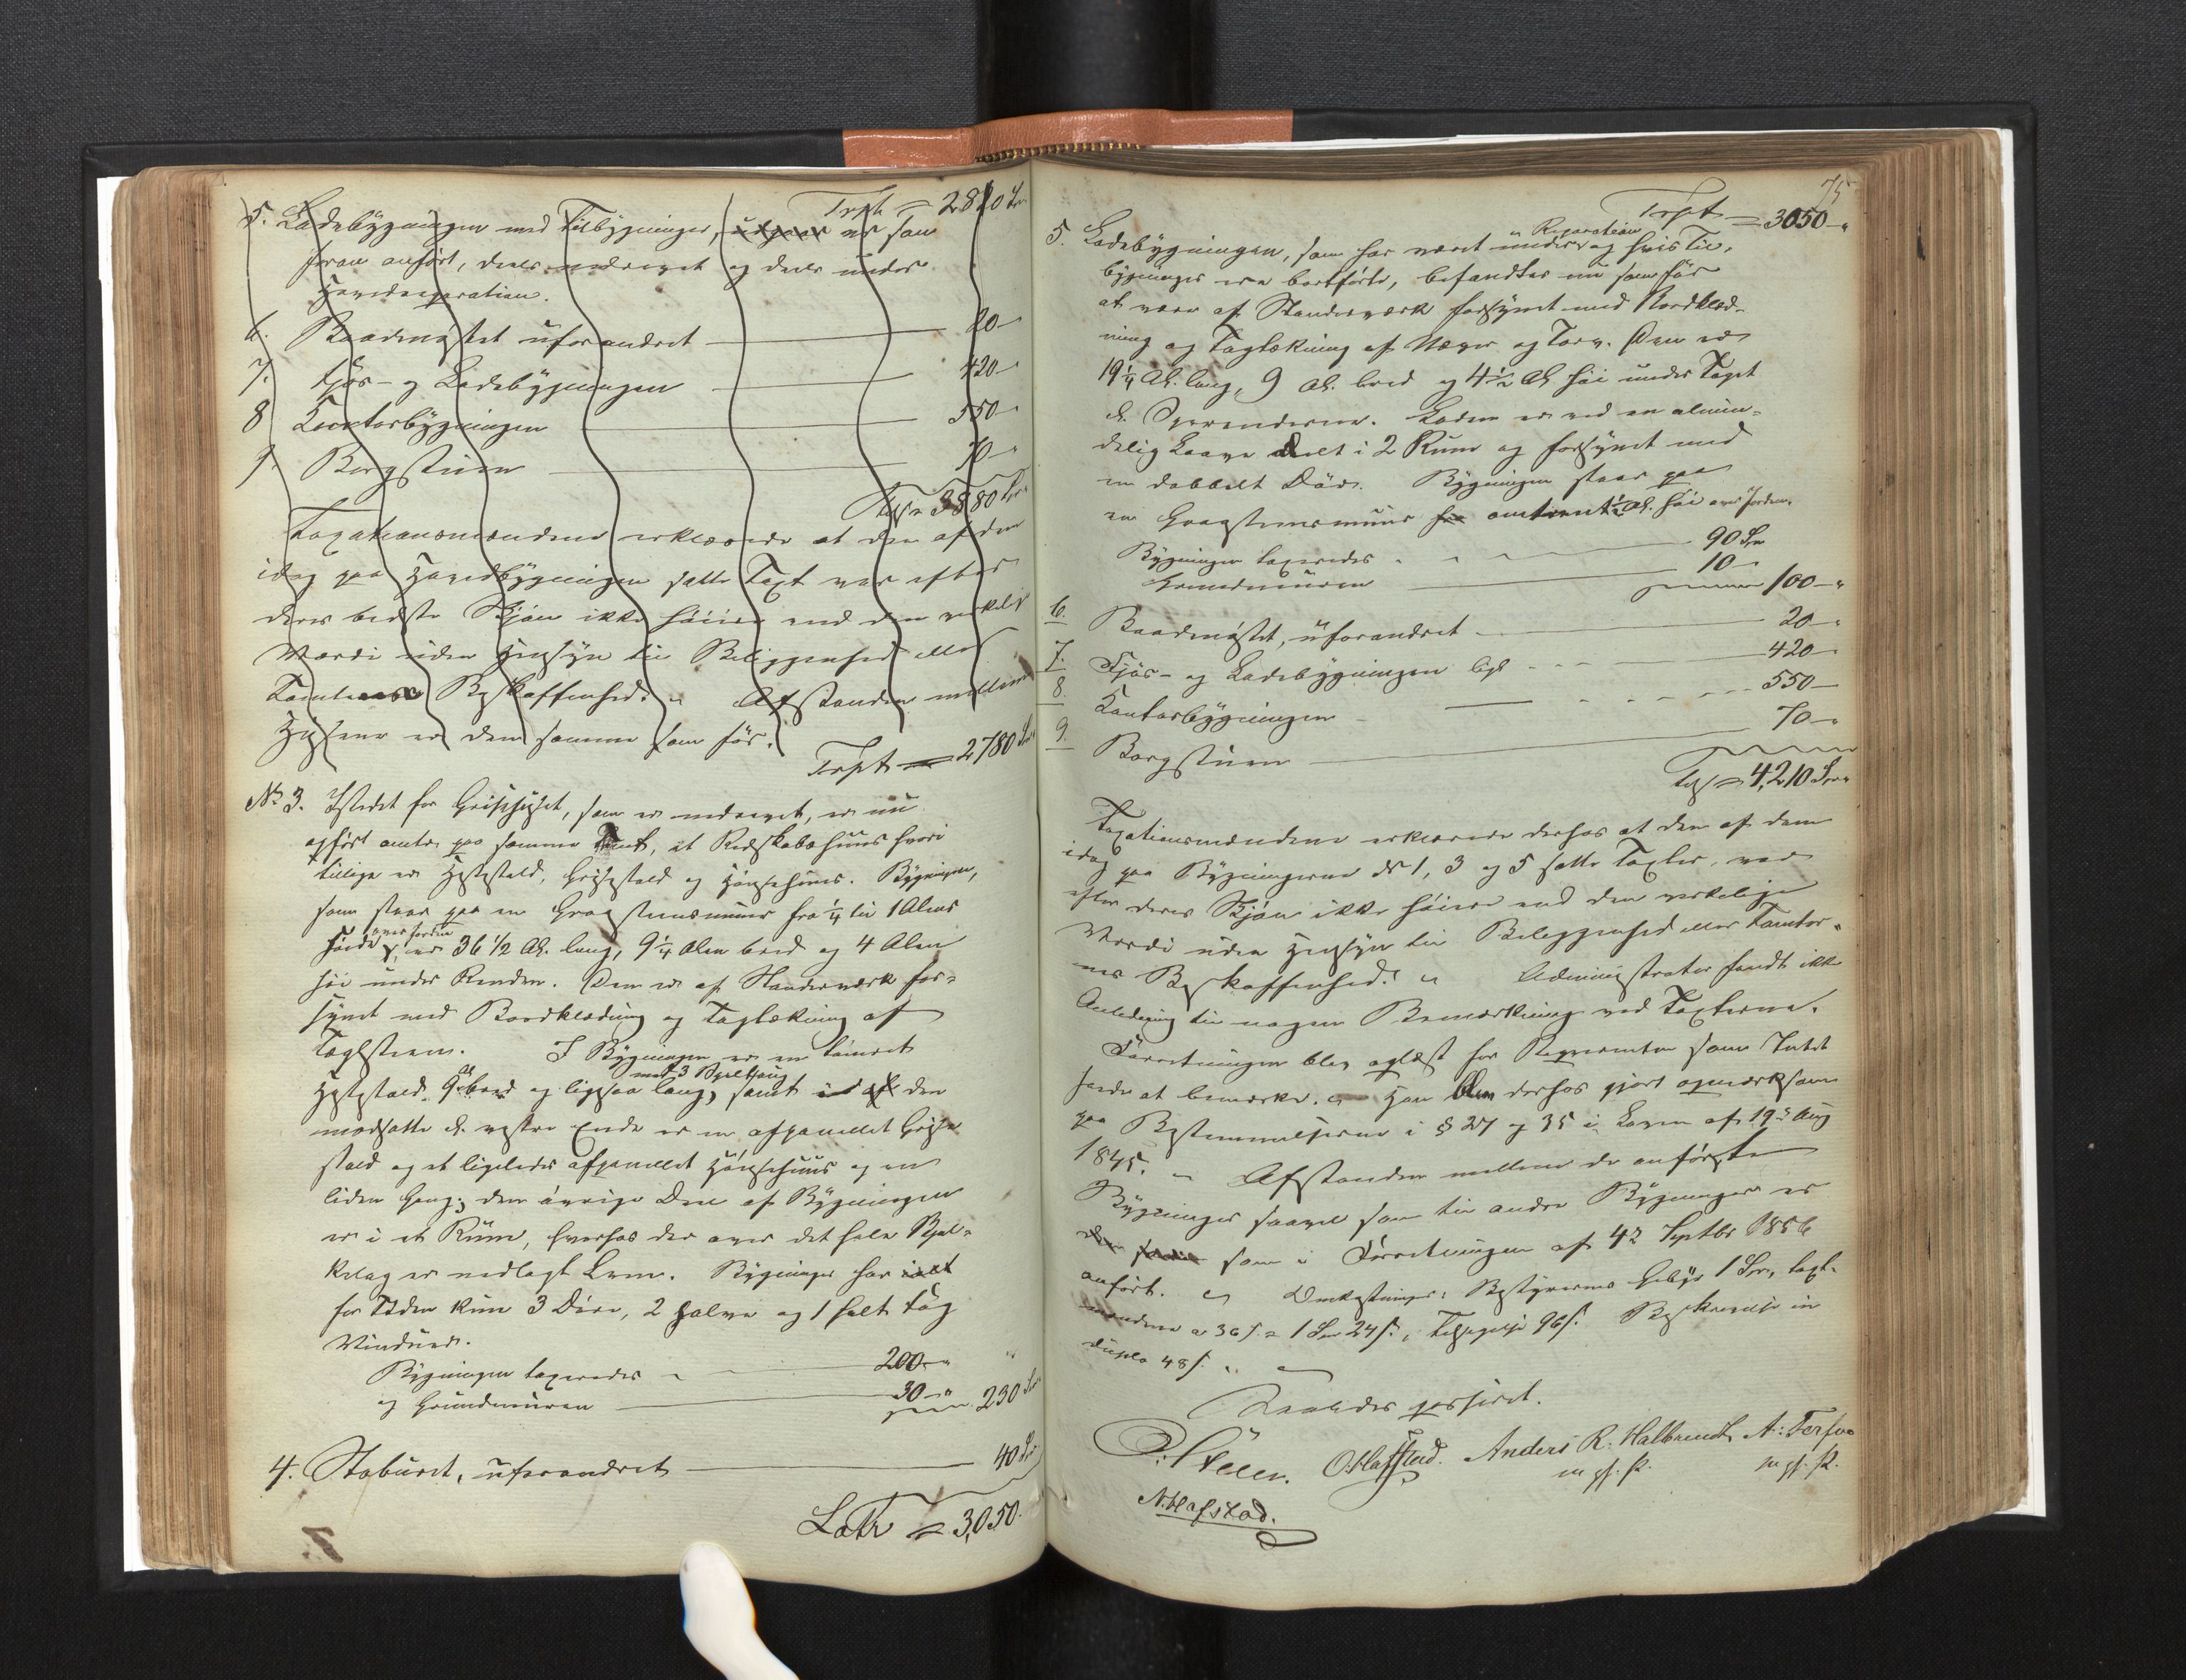 Trpt = 2820 Spd
5. Ladebygningen med Tilbygninger, er som
foran anført, deels nedrevet og deels under
Hovedreparation.
6. Baadnøstet uforandret — 20 -
7. Fjøs- og Ladebygningen — 420 -
8 Contorbygningen — 550 -
9. Borgstuen — 70 -
3880 Spd
Taxationsmændene erklærede at den af dem
idag paa Hovedbygningen satte Taxt var efter
deres bedste Skjøn ikke høiere end den virkelige
Værdi uden Hensyn til Beliggenhed eller
Tomternes Beskaffenhed. Afstanden mellem
Husene er den samme som før.
Trpt = 2780 Spd
No 3. Istedet for Grisehuset, som er nedrevet, er nu
opført omtr. paa samme Tomt, et Redskabshuus hvori
tillige er Hestestald, Grisestald og Hønsehuus. Bygningen,
som staar paa en Graasteensmuur fra 1/4 til 1 Alens
Høide over Jorden, er 36 1/2 Al. lang, 9 1/4 Alen bred og 4 Alen
høi under Renden. Den er af Standerværk for-
synet med Bordklædning og Taglækning af
Taglsteen. I Bygningen er en tømret
Hestestald 9 Al. bred og ligesaa lang, med 3 Spiltoug samt i den
modsatte d. vestre Ende er en afpanellet Grise
stald og et ligeledes afpanellet Hønsehuus og en
liden Gang; den øvrige Deel af Bygningen
er i et Rum, hvorhos der over det hele Bjel-
kelag er nedlagt Lem. Bygningen har
for Tiden kun 3 Døre, 2 halve og 1 helt Fag
Vinduer.
Bygningen taxeredes — 200 -
og Grundmuren — 30 - 230 Spd
4. Staburet, uforandret — 40 Spd
Latr = 3,050.
75
Trpt = 3050 -
5. Ladebygningen, som har været under Reparation og hvis Til-
bygninger ere bortførte, befandtes nu som før
at være af Standerværk forsynet med Bordklæd-
ning og Taglækning af Næver og Torv. Den er
19 1/4 Al. lang, 9 Al. bred og 4 1/2 Al. høi under Taget
d. Sperrenderne. Laden er ved en almin-
delig Laave deelt i 2 Rum og forsynet med
en dobbelt Dør. Bygningen staar paa
en Graasteensmuur omtrent 1/2 Al. høi over Jorden.
Bygningen taxeredes — 90 Spd
Grundmuren — 10 - 100 -
6. Baadnøstet, uforandret — 20 -
7. Fjøs- og Ladebygningen ligl — 420 -
8. Contorbygningen — 550 -
9. Borgstuen — 70 -
= 4,210 Spd
Taxationsmændene erklærede derhos at den af dem
idag paa Bygningerne No 1, 3 og 5 satte Taxter, var
efter deres Skjøn ikke høiere end den virkelige
Værdi uden Hensyn til Beliggenhed eller Tomter-
nes Beskaffenhed. Administrator fandt ikke
Anledning til nogen Bemærkning ved Taxterne.
Forretningen blev oplæst for Reqvirenten som Intet
havde at bemærke. Han blev derhos gjort opmærksom
paa Bestemmelserne i § 27 og 35 i Loven af 19de Aug
1845. Afstanden mellem de anførte
Bygninger saavel som til andre Bygninger er
som i Forretningen af 4de Septbr 1856
anført. Omkostninger: Bestyrerens Gebyr 1 Spd, taxt-
mændene a 36 s. = 1 Spd 24 s., Tilsigelse 96 s. Beskrivelse in
duplo 48 s.
Saaledes passeret.
P. Steen. O. Hafstad. Anders R. Halbrendt A: Terfve
m. p. P. m. p. P.
N. Hafstad.